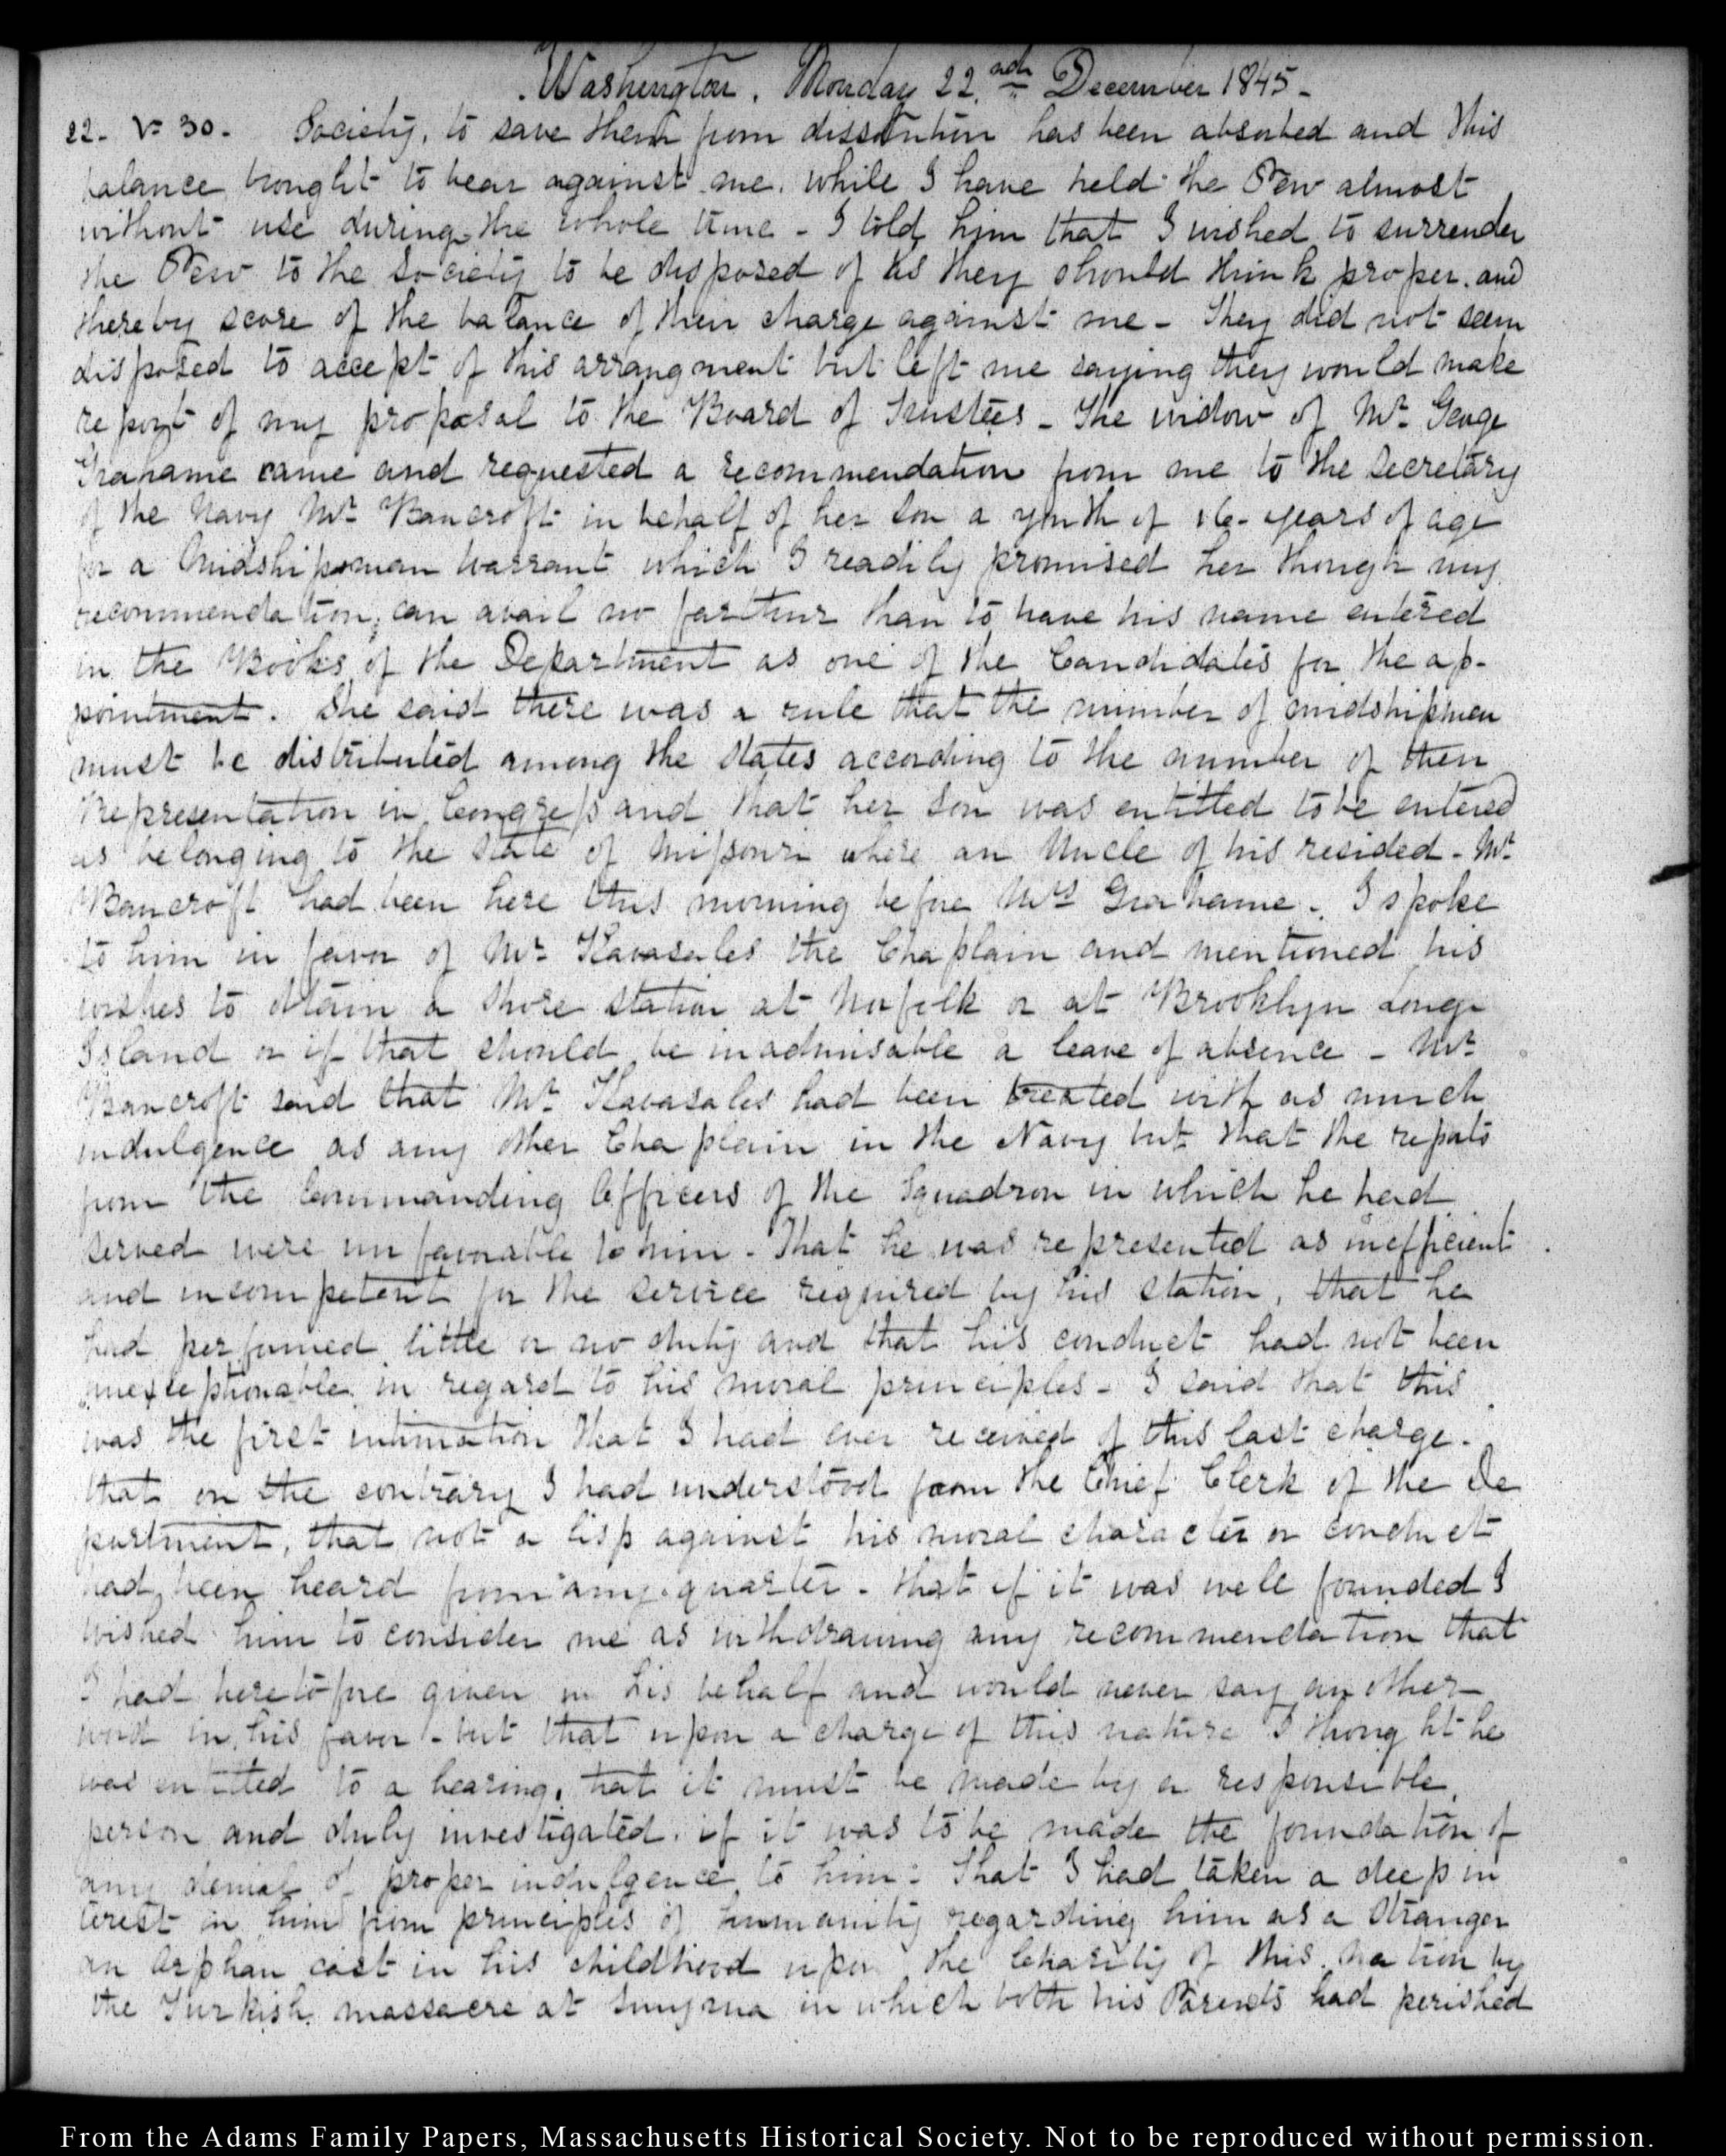 Washington. Monday 22.nd December 1845-
22- V- 30- Society, to save them from dissolution has been absorbed and this
balance brought to bear against me. while I have held the Pew almost
without use during the whole time - I told him that I wished to surrender
the Pew to the Society to be disposed of as they should think proper. and
thereby score of the balance of their charge against me - They did not seem
disposed to accept of this arrangment but left me saying they would make
report of my proposal to the Board of Trustees - The widow of Mr. George
Grahame came and requested a recommendation from me to the Secretary
of the Navy Mr. Bancroft in behalf of her Son a youth of 16- years of age
for a Midshipsman warrant which I readily promised her though my
recommendation, can avail no farther than to have his name entered
in the Books of the Department as one of the Candidates for the ap-
pointment. She said there was a rule that the number of midshipmen
must be distributed among the States according to the number of their
Representation in Congress and that her Son was entitled to be entered
as belonging to the State of Missouri where an Uncle of his resided - Mr.
Bancroft had been here this morning before Mrs. Grahame. I spoke
to him in favor of Mr. Kavasales the Chaplain and mentioned his
wishes to obtain a Shore Station at Norfolk or at Brooklyn Long
Island or if that should be inadmissable a leave of absence - Mr.
Bancroft said that Mr. Kavasales had been treated with as much
indulgence as any other Chaplain in the Navy but that the reports
from the Commanding Officers of the Squadron in which he had
served were unfavorable to him - That he was represented as inefficient
and incompetent for the service required by his station, that he
had performed little or no duty and that his conduct had not been
unexceptionable in regard to his moral principles - I said that this
was the first intimation that I had ever received of this last charge.
that on the contrary I had understood from the Chief Clerk of the De
partment, that not a lisp against his moral character or conduct
had been heard from any quarter - that if it was well founded I
wished him to consider me as withdrawing any recommendation that
I had heretofore given in his behalf and would never say another
word in his favor - but that upon a charge of this nature I thought he
was entitled to a hearing, that it must be made by a responsible
person and duly investigated. if it was to be made the foundation of
any denial of proper indulgence to him: That I had taken a deep in
terest in him from principles of humanity regarding him as a Stranger
an Orphan cast in his childhood upon the Charity of this nation by
the Turkish massacre at Smyrna in which both his Parents had perished
From the Adams Family Papers, Massachusetts Historical Society. Not to be reproduced without permission.